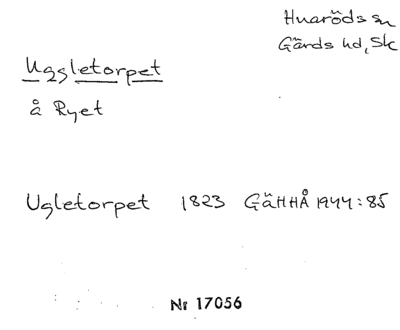 Huaröds sn
Gärds hd, Sk
Uggletorpet
å Ryet
Ugletorpet 1823 GäHHÅ 1944:85
Nr 17056